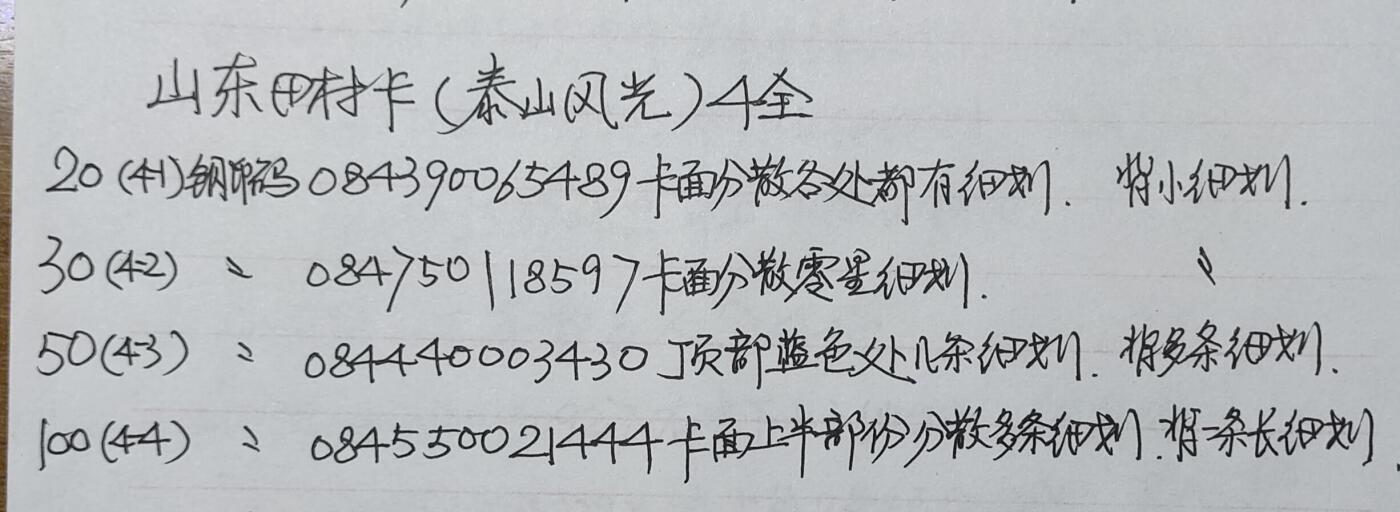 山东田村卡(泰山风光)4全
20(4-1)钢印码084390065489卡面分散各处都有细划.背小细划.
30(4-2) 〃 084750118597卡面分散零星细划. 〃
50(4-3) 〃 084440003430顶部蓝色处几条细划.背多条细划.
100(4-4) 〃 084550021444卡面上半部份分散多条细划.背一条长细划.